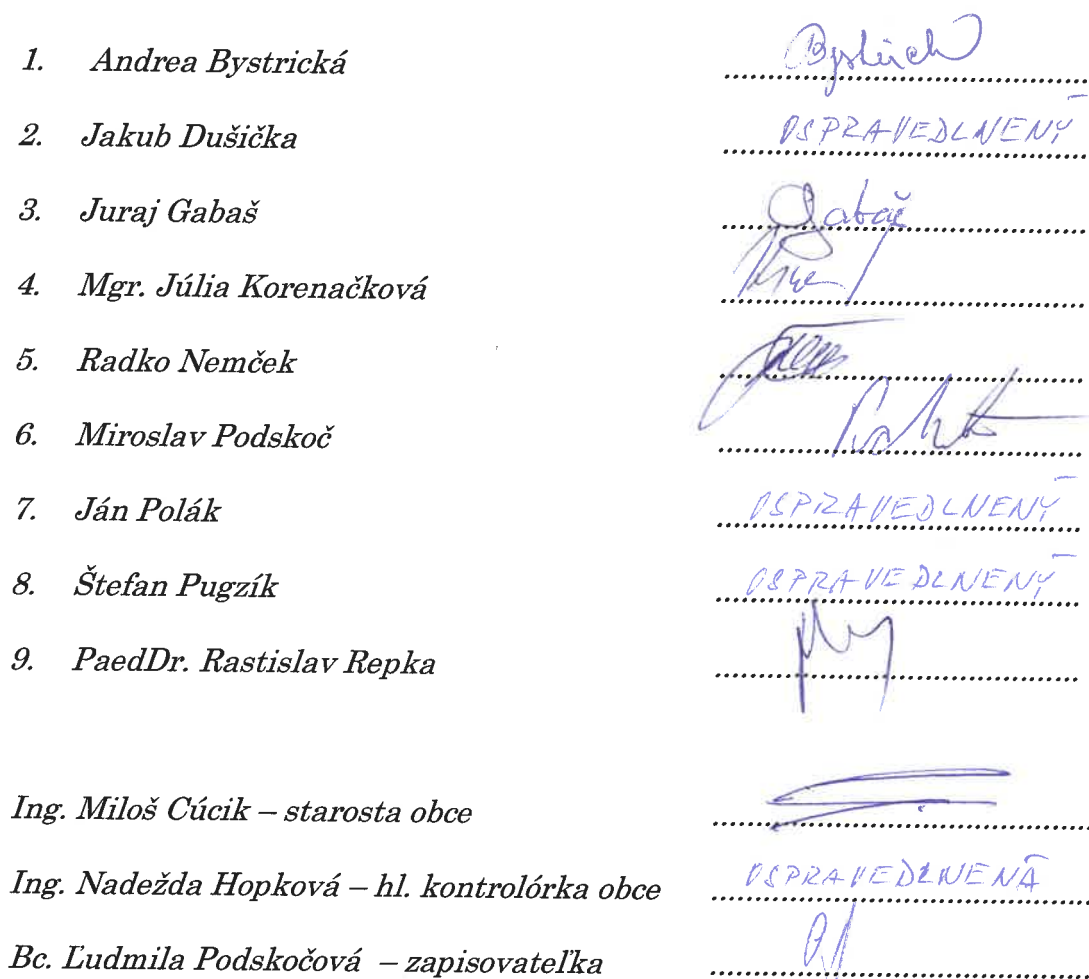 1. Andrea Bystrická
2. Jakub Dušička OSPRAVEDLNENÝ
3. Juraj Gabaš Gabaš
4. Mgr. Júlia Korenačková
5. Radko Nemček
6. Miroslav Podskoč
7. Ján Polák OSPRAVEDLNENÝ
8. Štefan Pugzík OSPRAVEDLNENÝ
9. PaedDr. Rastislav Repka
Ing. Miloš Cúcik – starosta obce
Ing. Nadežda Hopková – hl. kontrolórka obce OSPRAVEDLNENÁ
Bc. Ľudmila Podskočová – zapisovateľka